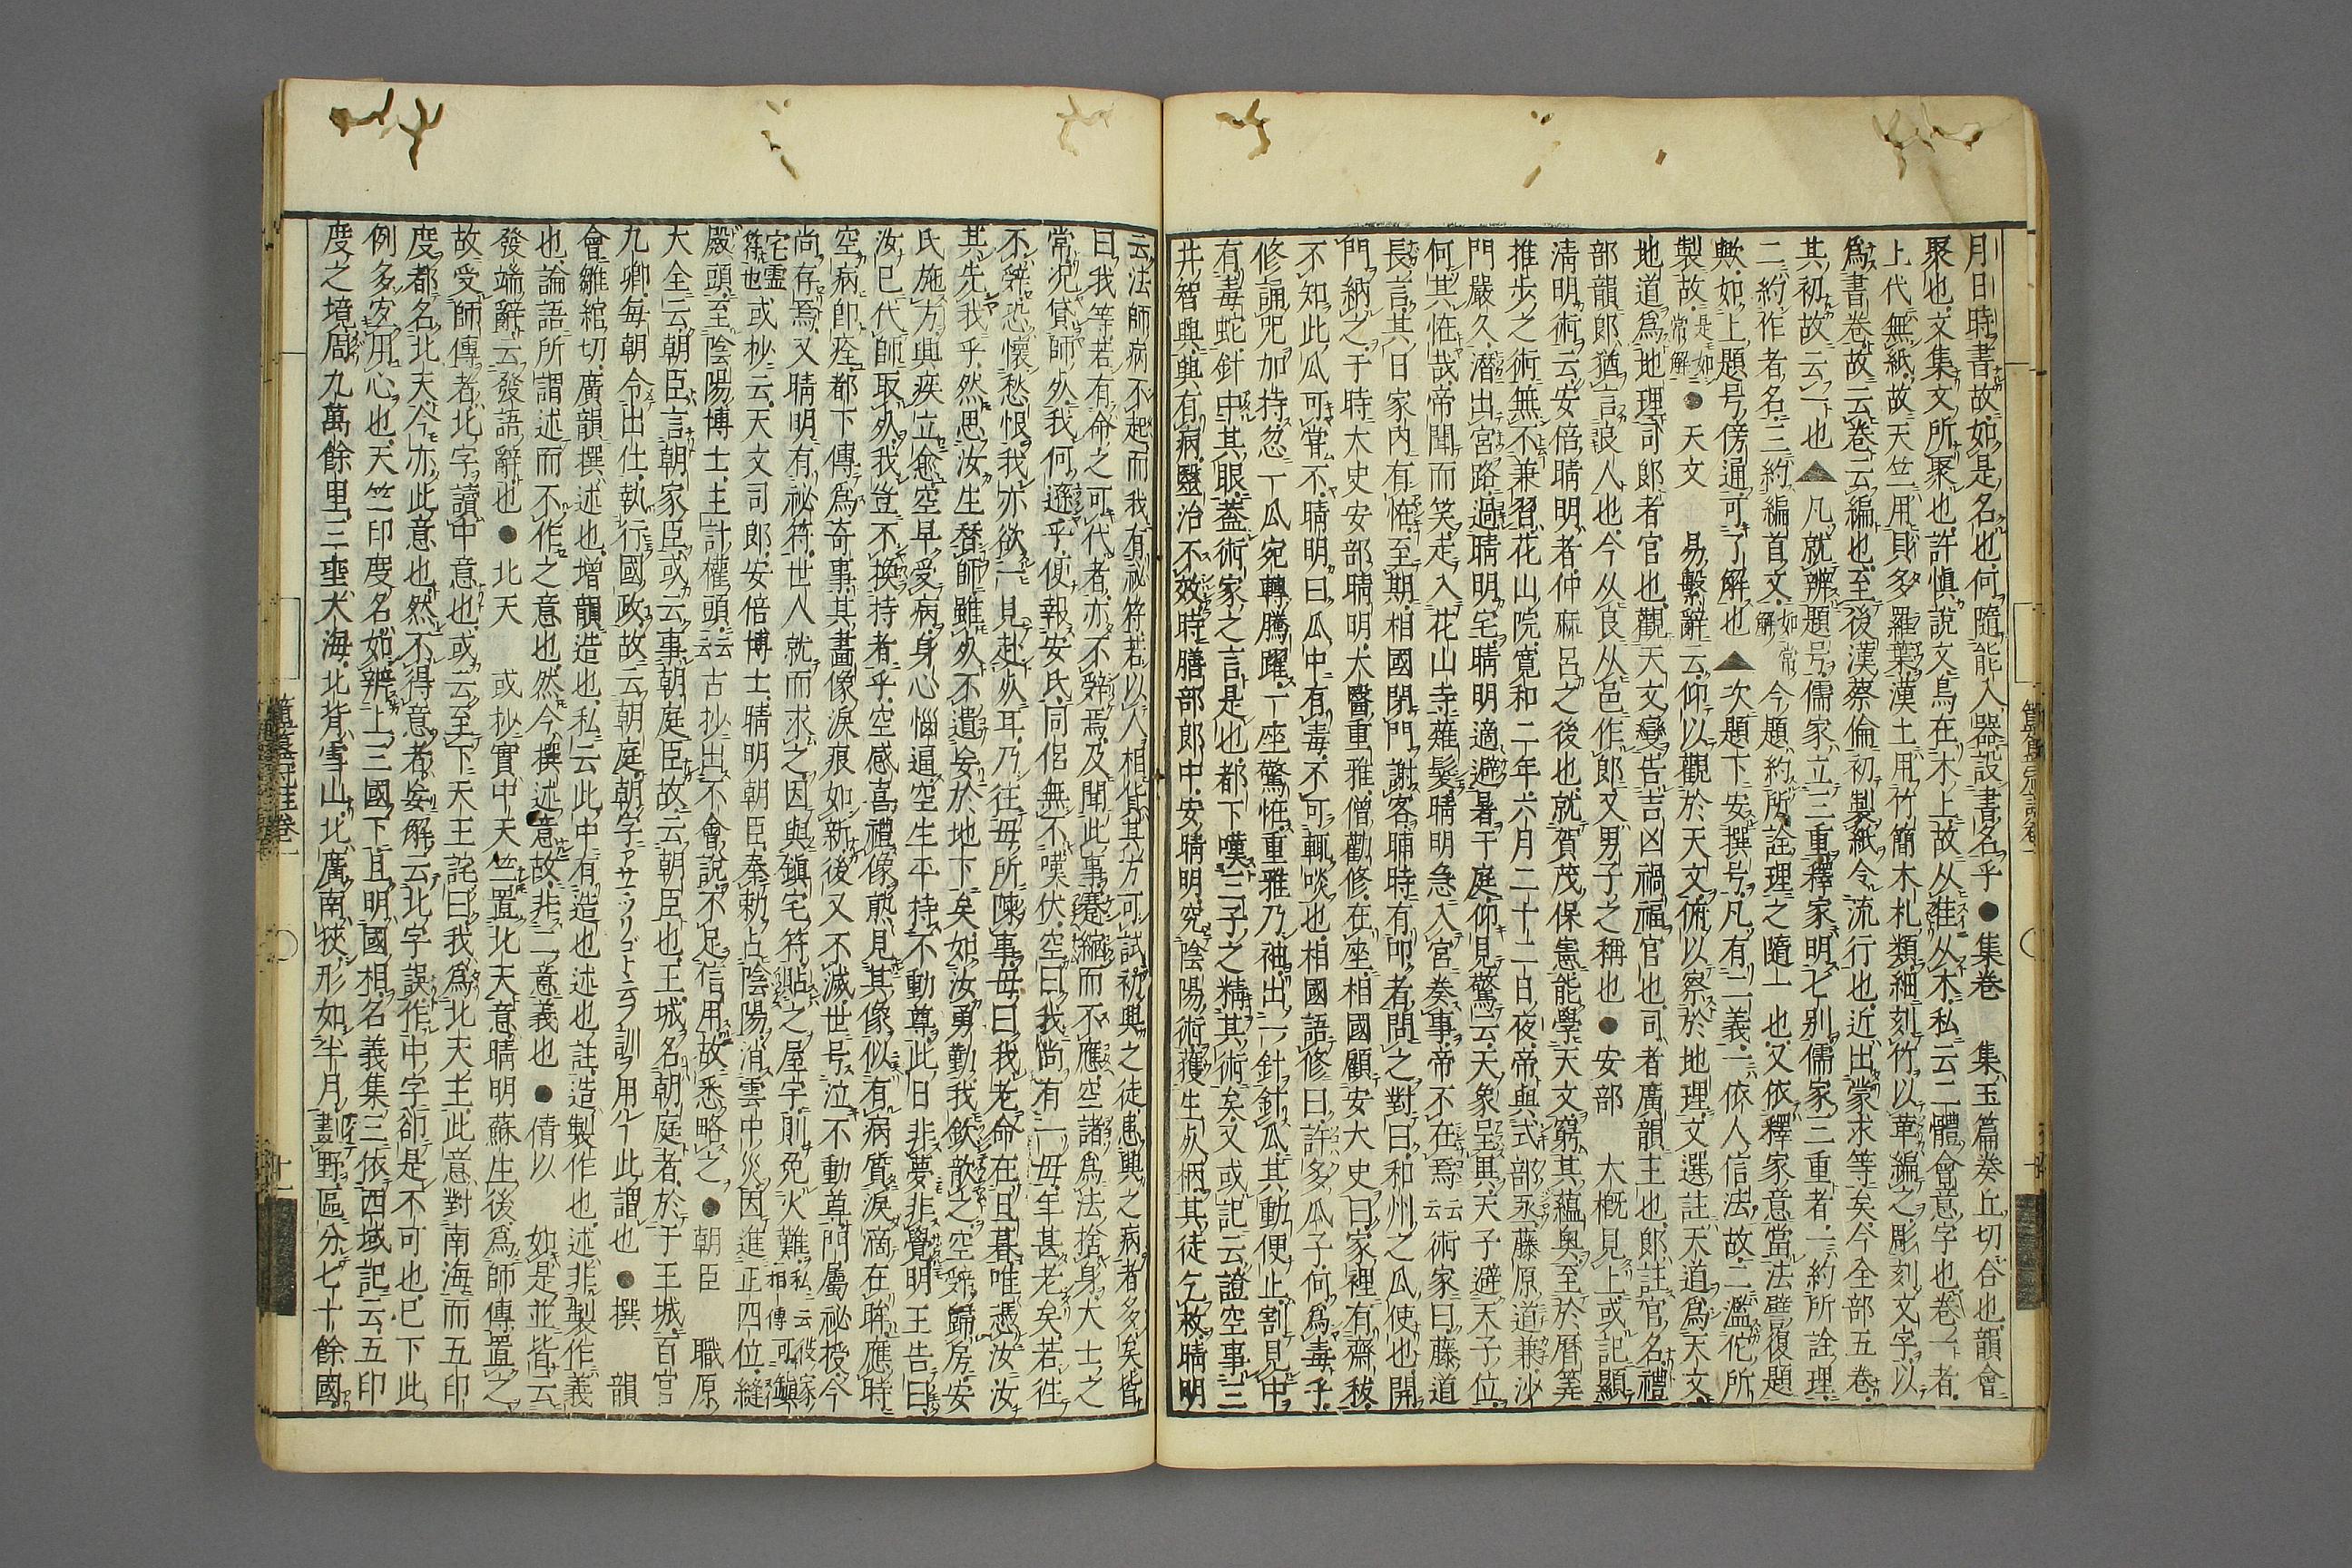 月日時書故如是名也何隨能入器設書名乎●集巻 集玉篇奏丘切合也韻會
聚也文集文所聚也許愼說文鳥在木上故从隹从木私云二體會意字也巻フト者
上代無紙故天竺用貝多羅葉漢土用竹簡木札類細刻竹以葦編之彫刻文字以
爲書巻故云巻云編也至後漢蔡倫初製紙令流行也近出蒙求等矣今全部五巻
其初故云一也▲凡就辨題号儒家立三重釋家明七別儒家三重者一約所詮理
二約作者名三約編首文如常解今題約所詮理之隨一也又依釋家意當法譬復題
歟如上題号傍通可了解也▲次題下安撰号凡有二義一依人信法故二濫佗所
製故是如常解●天文 易繫辭云仰以觀於天文俯以察於地理文選註天道爲天文
地道爲地理司郎者官也觀天文變告吉凶禍福官也司者廣韻主也郎註官名禮
部韻郎猶言浪人也今从良从邑作郎又男子之稱也●安部 大概見上或記顯
淸明術云安倍晴明者仲麻呂之後也就賀茂保憲能學天文窮其蘊奥至於暦筭
推歩之術無不兼習花山院寛和二年六月二十二日夜帝與式部丞藤原道兼沙
門嚴久潜出宮路過晴明宅晴明適避暑于庭仰見驚云天象呈異天子避天子位
何其恠哉帝聞而笑走入花山寺薙髮晴明急入宮奏事帝不在焉云云術家曰藤道
長言其日家内有恠至期相國閉門謝客晡時有叩者問之對曰和州之瓜使也開
門納之于時大史安部晴明大醫重雅僧勸修在座相國顧安大史曰家裡有齋秡
不知此瓜可甞不晴明曰瓜中有毒不可輙啖也相國語修曰許多瓜子何爲毒乎
修誦咒加持忽一瓜宛轉騰躍一座驚恠重雅乃袖出一針針瓜其動便止割見中
有毒蛇針中其眼葢術家之言是也都下嘆三子之精其術矣又或記云證空事三
井智興興有病醫治不效時膳部郎中安晴明究陰陽術獲生死柄其徒乞救晴明
云法師病不起而我有祕符若以人相貨其方可試初興之徒患興之病者多矣皆
曰我等若有命之可代者亦不辭焉及聞此事蹇縮而不應空諸爲法捨身大士之
常况貸師死我何遜乎便報安氏同侶無不嘆伏空曰我尚有一母年甚老矣若徃
不辭恐懷愁恨我亦欲一見赴死耳乃往母所陳事母曰我老命在旦暮唯憑汝汝
其先我乎然思汝生替師雖死不遺妄於地下矣如汝勇勤我欽歆之空辭歸房安
氏施方與疾立愈空早受病身心惱逼空生平持不動尊此日非夢非覺明王告曰
汝已代師取死我豈不換持者乎空感喜禮像熟見其像似有病質淚滴在眸應時
空病即痊都下傳爲奇事其畫像淚痕如新後又不滅世号泣不動尊門屬祕授今
尚存焉又晴明有祕符世人就而求之因與鎮宅符貼之屋宇則免火難私云彼家相傳可鎮
宅霊符也或抄云天文司郎安倍博士晴明朝臣奏勅占陰陽消雲中災因進正四位縫
殿頭至陰陽博士主計權頭云云古抄出不會說不足信用故悉略之●朝臣 職原
大全云朝臣言朝家臣或云事朝庭臣故云朝臣也王城名朝庭者於于王城百官
九卿毎朝令出仕執行國政故云朝庭朝字アサマツリゴト云ヲ訓ヲ用ルヿ此謂也●撰 韻
會雛綰切廣韻撰述也増韻造也私云此中有造也述也註造製作也述非製作義
也論語所謂述而不作之意也然今撰述意故非二意義也●倩以 如是並皆云
發端辭云發語辭也●北天 或抄實中天竺置北天意晴明蘇生後爲師傳置之
故受師傳者北字讀中意也或云至下天王詫曰我爲北天主此意對南海而五印
度都名北天今亦此意也然不得意者妄解云北字誤作中字卻是不可也已下此
例多安用心也天竺印度名如辨上三國下且明國相名義集三依西域記云五印
度之境周九萬餘里三垂大海北背雪山北廣南狹形如半月畫野區分七十餘國